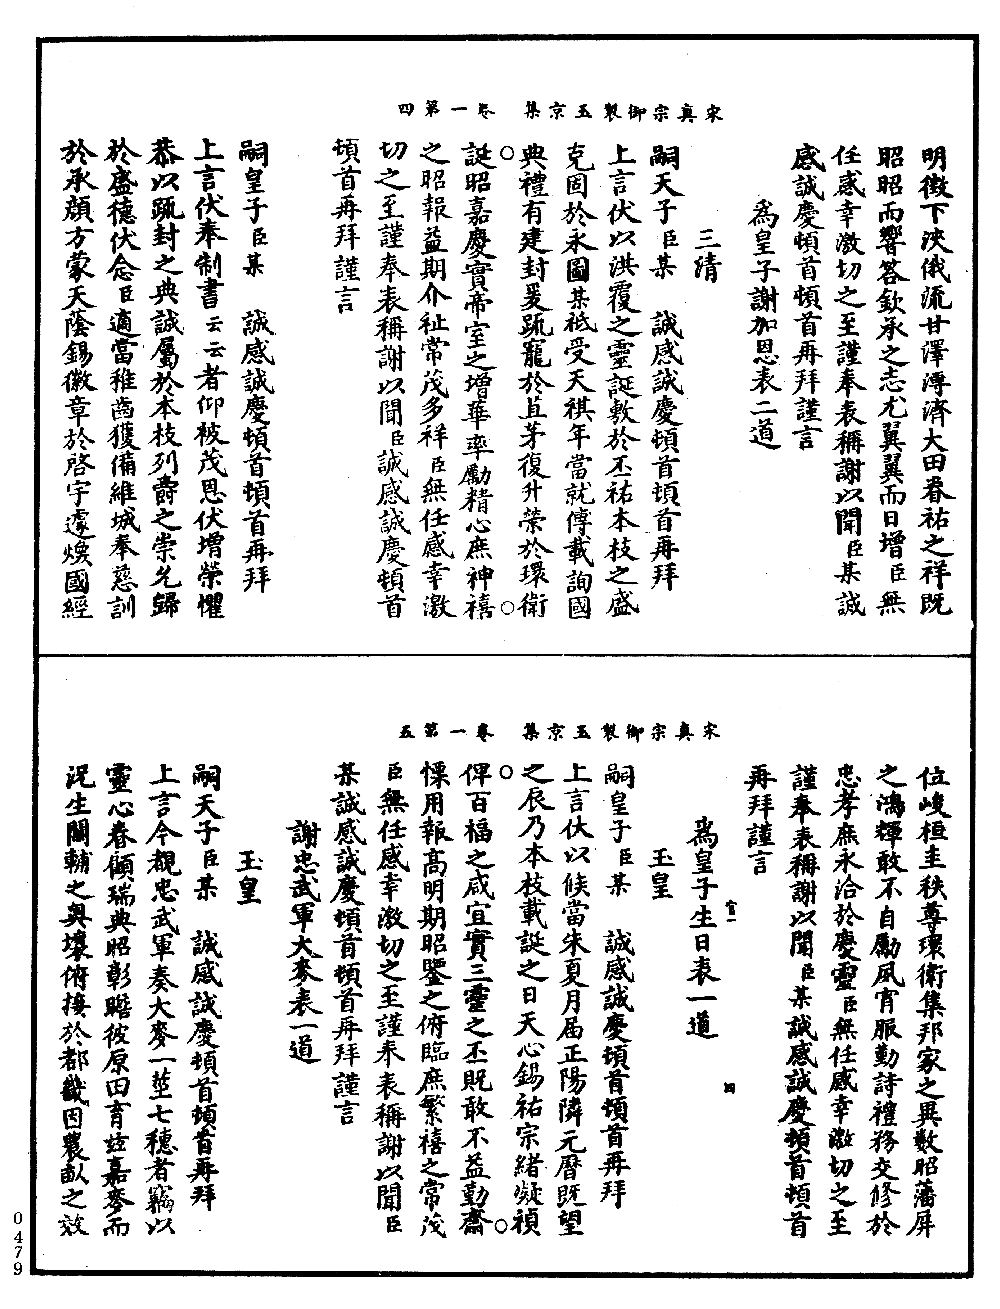 宋真宗御製玉京集　卷一第四
明徵下浹俄流甘澤溥濟大田眷祐之祥既
昭昭而響答欽承之志尤翼翼而日增臣無
任感幸激切之至謹奉表稱謝以聞臣某誠
感誠慶頓首頓首再拜謹言
為皇子謝加恩表二道
三清
嗣天子臣某　誠感誠慶頓首頓首再拜
上言伏以洪覆之靈誕敷於丕祐本枝之盛
克固於永圖某祇受天祺年當就傅載詢國
典禮有建封爰疏寵於苴茅復升榮於環衛
誕昭嘉慶實帝室之增華率勵精心庶神禧
之昭報益期介祉常茂多祥臣無任感幸激
切之至謹奉表稱謝以聞臣誠感誠慶頓首
頓首再拜謹言
嗣皇子臣某　誠感誠慶頓首頓首再拜
上言伏奉制書云云者仰被茂恩伏增榮懼
恭以疏封之典誠屬於本枝列爵之崇允歸
於盛德伏念臣適當稚齒獲備維城奉慈訓
於承顏方蒙天蔭錫徽章於啓宇遽煥國經
宋真宗御製玉京集　卷一第五
位峻桓圭秩尊環衛集邦家之異數昭藩屏
之鴻輝敢不自勵夙宵服勤詩禮務交修於
忠孝庶永洽於慶靈臣無任感幸激切之至
謹奉表稱謝以聞臣某誠感誠慶頓首頓首
再拜謹言
為皇子生日表一道
玉皇
嗣皇子臣某　誠感誠慶頓首頓首再拜
上言伏以候當朱夏月届正陽隣元曆既望
之辰乃本枝載誕之日天心錫祐宗緒凝禎
俾百福之咸宜實三靈之丕貺敢不益勤齋
慄用報高明期昭鑒之俯臨庶繁禧之常茂
臣無任感幸激切之至謹奉表稱謝以聞臣
某誠感誠慶頓首頓首再拜謹言
謝忠武軍大麥表一道
玉皇
嗣天子臣某　誠感誠慶頓首頓首再拜
上言今覩忠武軍奏大麥一莖七穗者竊以
靈心眷顧瑞典昭彰瞻彼原田育兹嘉麥而
況生關輔之奥壤俯接於都畿因農畝之效
四
0479